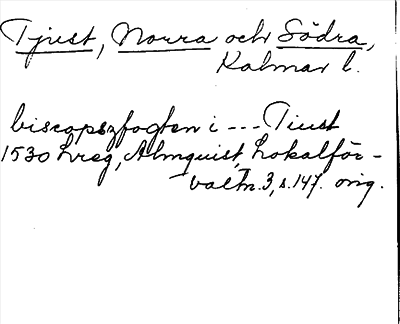 Tjust, Norra och Södra,
Kalmar l.
biscopszfogten i --- Tiust
1530 Lreg, Almquist, Lokalför-
valtn. 3, s. 147. orig.